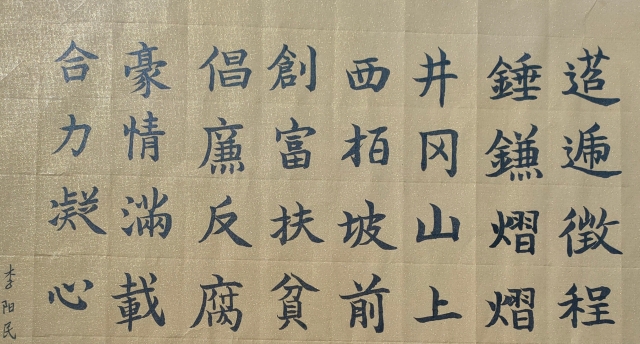 迢逓徵程
錘鎌熠熠
井冈山上
西柏坡前
創富扶貧
倡廉反腐
豪情滿載
合力凝心
李阳民